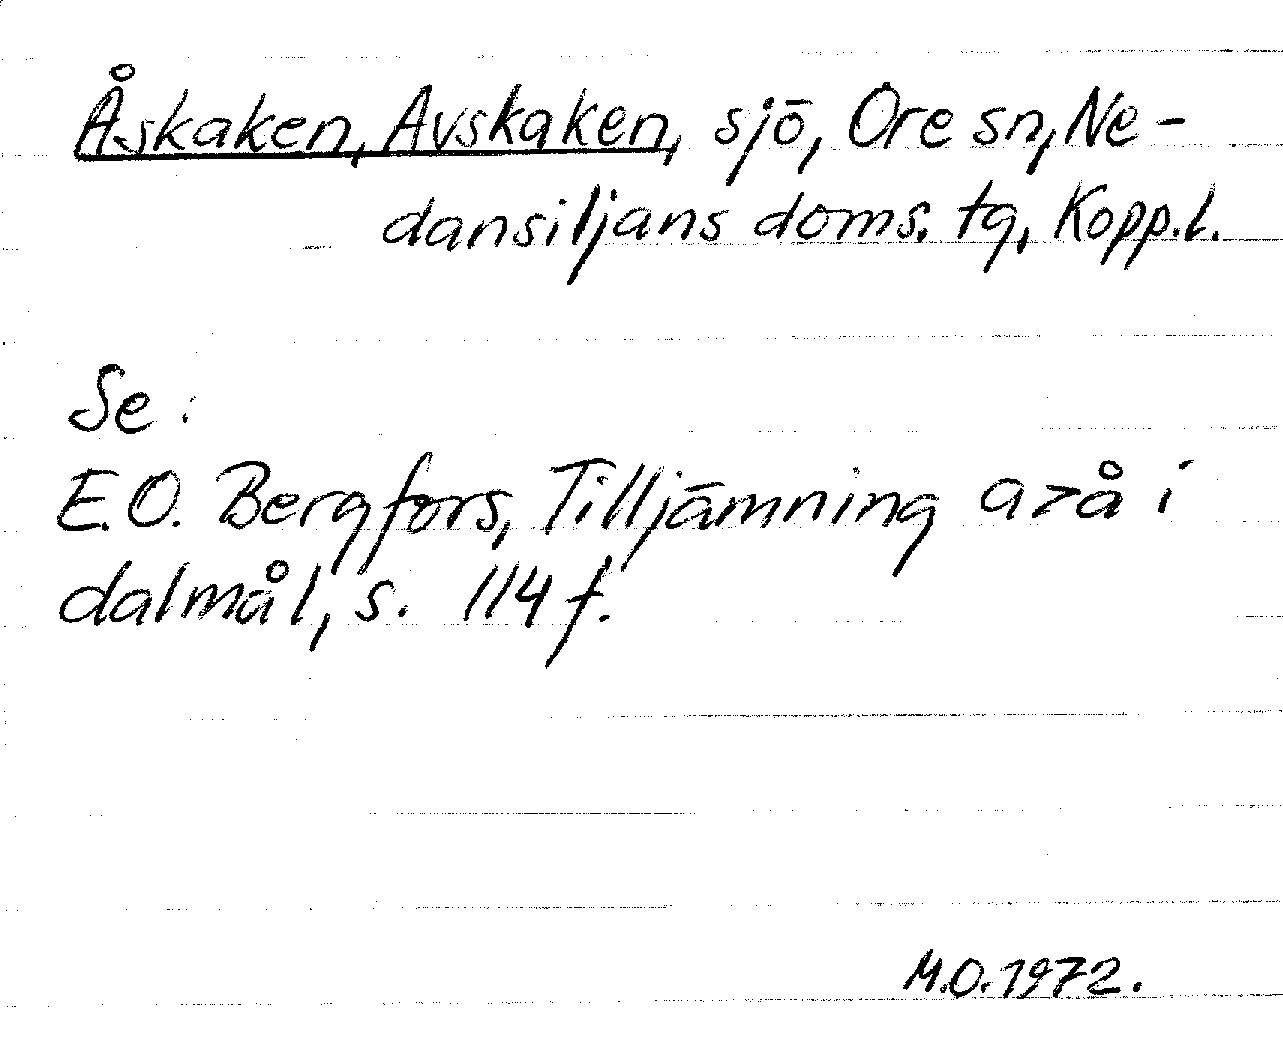 Åskaken, Avskaken, sjö, Ore sn, Ne-
dansiljans doms. tg, Kopp.l.
Se:
E.O. Bergfors, Tilljämning a>å i
dalmål, s. 114 f.
M.O. 1972.